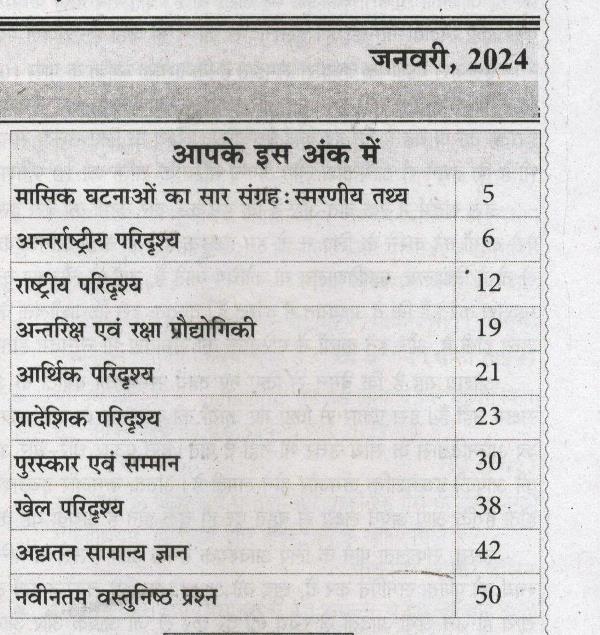 जनवरी, 2024
आपके इस अंक में
मासिक घटनाओं का सार संग्रह : स्मरणीय तथ्य 5
अन्तर्राष्ट्रीय परिदृश्य 6
राष्ट्रीय परिदृश्य 12
अन्तरिक्ष एवं रक्षा प्रौद्योगिकी 19
आर्थिक परिदृश्य 21
प्रादेशिक परिदृश्य 23
पुरस्कार एवं सम्मान 30
खेल परिदृश्य 38
अद्यतन सामान्य ज्ञान 42
नवीनतम वस्तुनिष्ठ प्रश्न 50